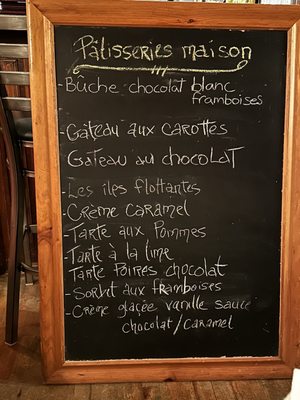 Pâtisseries maison
- Bûche chocolat blanc
framboises
- Gâteau aux carottes
Gateau au chocolat
- Les iles flottantes
- Crème caramel
- Tarte aux Pommes
- Tarte à la lime
Tarte Poires chocolat
- Sorbet aux framboises
- Crème glaçée vanille sauce
chocolat/caramel